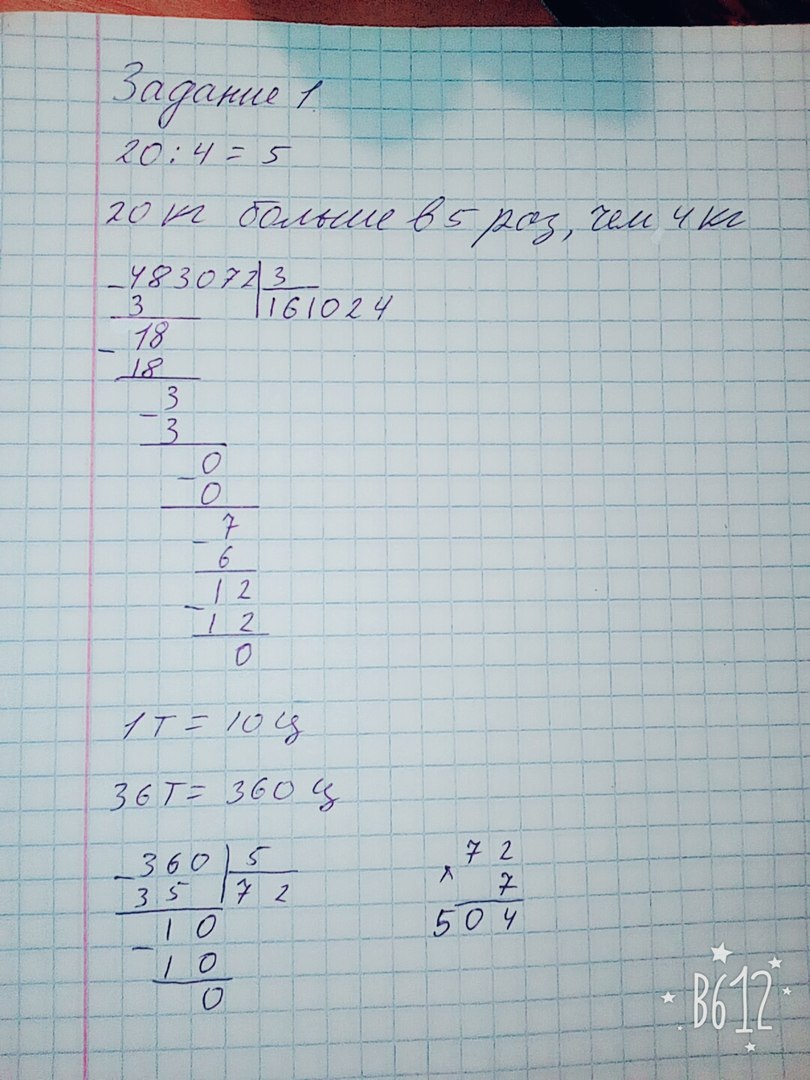 Задание 1.
20 : 4 = 5
20 кг больше в 5 раз, чем 4 кг
483072 | 3
3 161024
18
18
3
3
0
0
7
6
12
12
0
1т = 10 ц
36т = 360 ц
360 | 5
35 72
10
10
0
72
× 7
504
B612